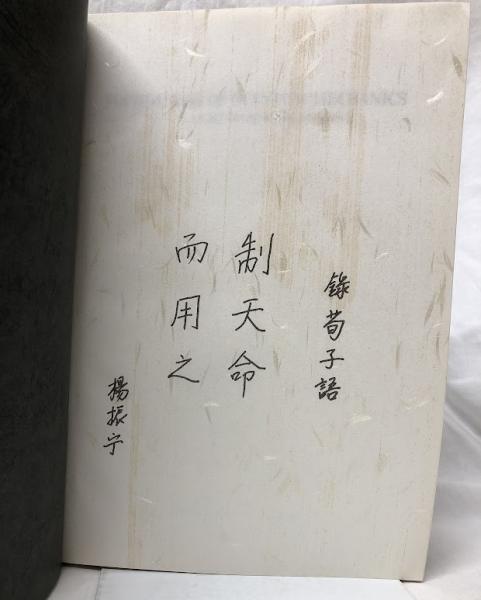 錄荀子語
制天命
而用之
楊振宁